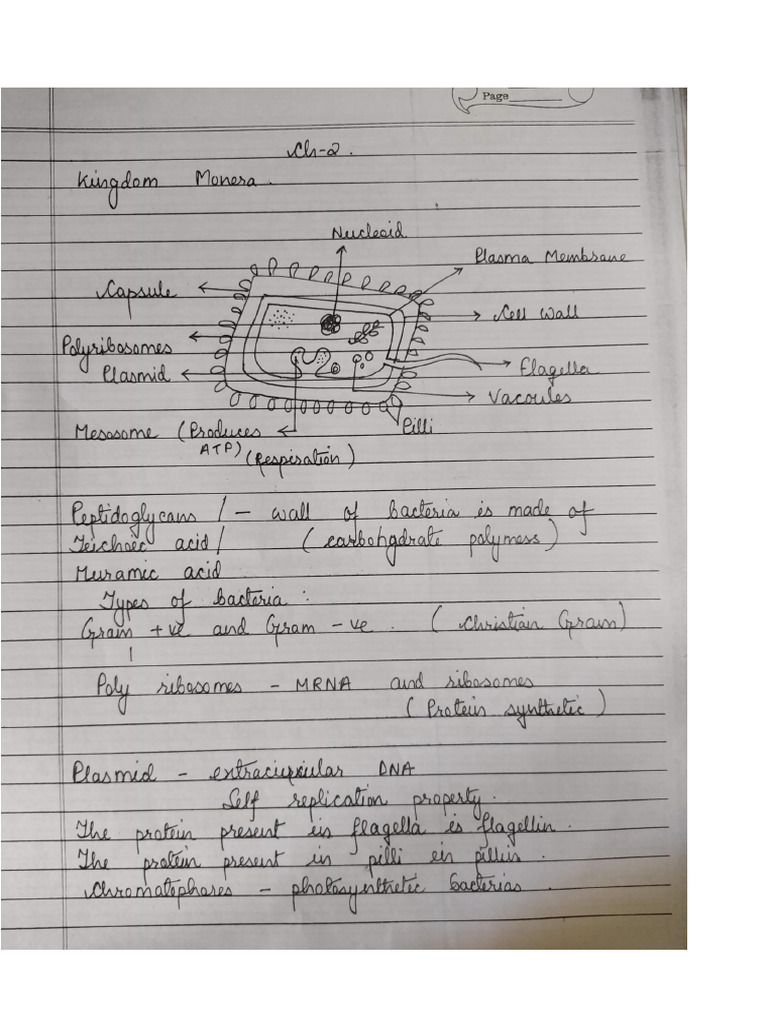 Page
Ch-2.
Kingdom Monera.
Nucleoid.
Plasma Membrane
Capsule
Cell wall
Polyribosomes
Plasmid
Flagella
Vacoules
Mesosome (Produces ATP) (Respiration)
Pilli
Peptidoglycans / - wall of bacteria is made of
Teichoic acid / (carbohydrate polymers)
Muramic acid
Types of bacteria :
Gram +ve and Gram -ve. (Christian Gram)
Poly ribosomes - MRNA and ribosomes
(Protein synthetic)
Plasmid - extracircular DNA
Self replication property.
The protein present is flagella is flagellin.
The protein present in pilli is pillin.
Chromatephores - photosynthetic bacterias.